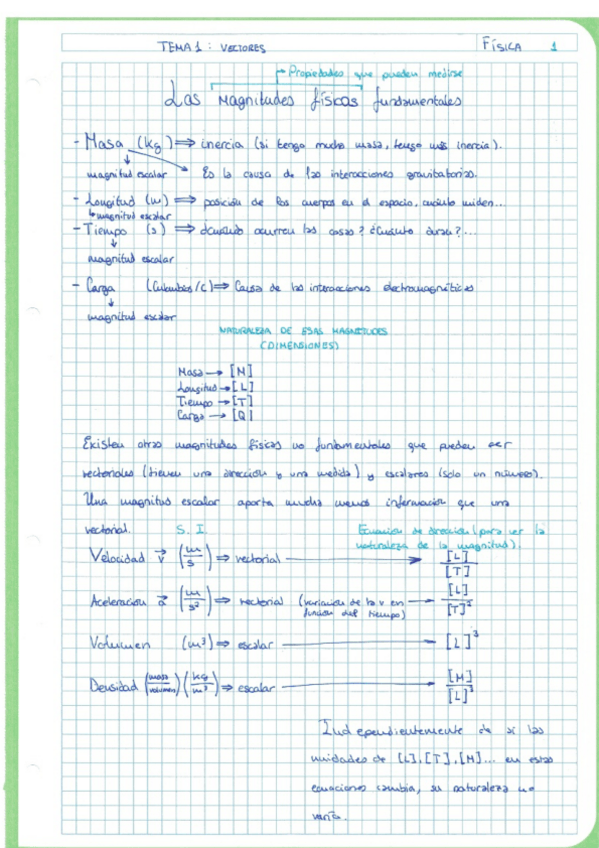 TEMA 1 : VECTORES
FÍSICA 1
Propiedades que pueden medirse
Las Magnitudes físicas fundamentales
- Masa (kg) ⇒ inercia (si tengo mucha masa, tengo más inercia).
magnitud escalar Es la causa de las interacciones gravitatorias.
- Longitud (m) ⇒ posición de los cuerpos en el espacio, cuánto miden...
magnitud escalar
- Tiempo (s) ⇒ ¿Cuándo ocurren las cosas? ¿Cuánto duran?...
magnitud escalar
- Carga (Culombios/C) ⇒ Causa de las interacciones electromagnéticas
magnitud escalar
NATURALEZA DE ESAS MAGNITUDES
(DIMENSIONES)
Masa → [M]
Longitud → [L]
Tiempo → [T]
Carga → [Q]
Existen otras magnitudes físicas no fundamentales que pueden ser
vectoriales (tienen una dirección y una medida) y escalares (solo un número).
Una magnitud escalar aporta mucha menos información que una
vectorial. S. I. Ecuación de dirección (para ver la
naturaleza de la magnitud).
Velocidad v⃗ (m/s) ⇒ vectorial → [L]/[T]
Aceleración a⃗ (m/s²) ⇒ vectorial (variación de la v en función del tiempo) → [L]/[T]²
Volumen (m³) ⇒ escalar → [L]³
Densidad (masa/volumen) (kg/m³) ⇒ escalar → [M]/[L]³
Independientemente de si las
unidades de [L], [T], [M]... en estas
ecuaciones cambia, su naturaleza no
varía.